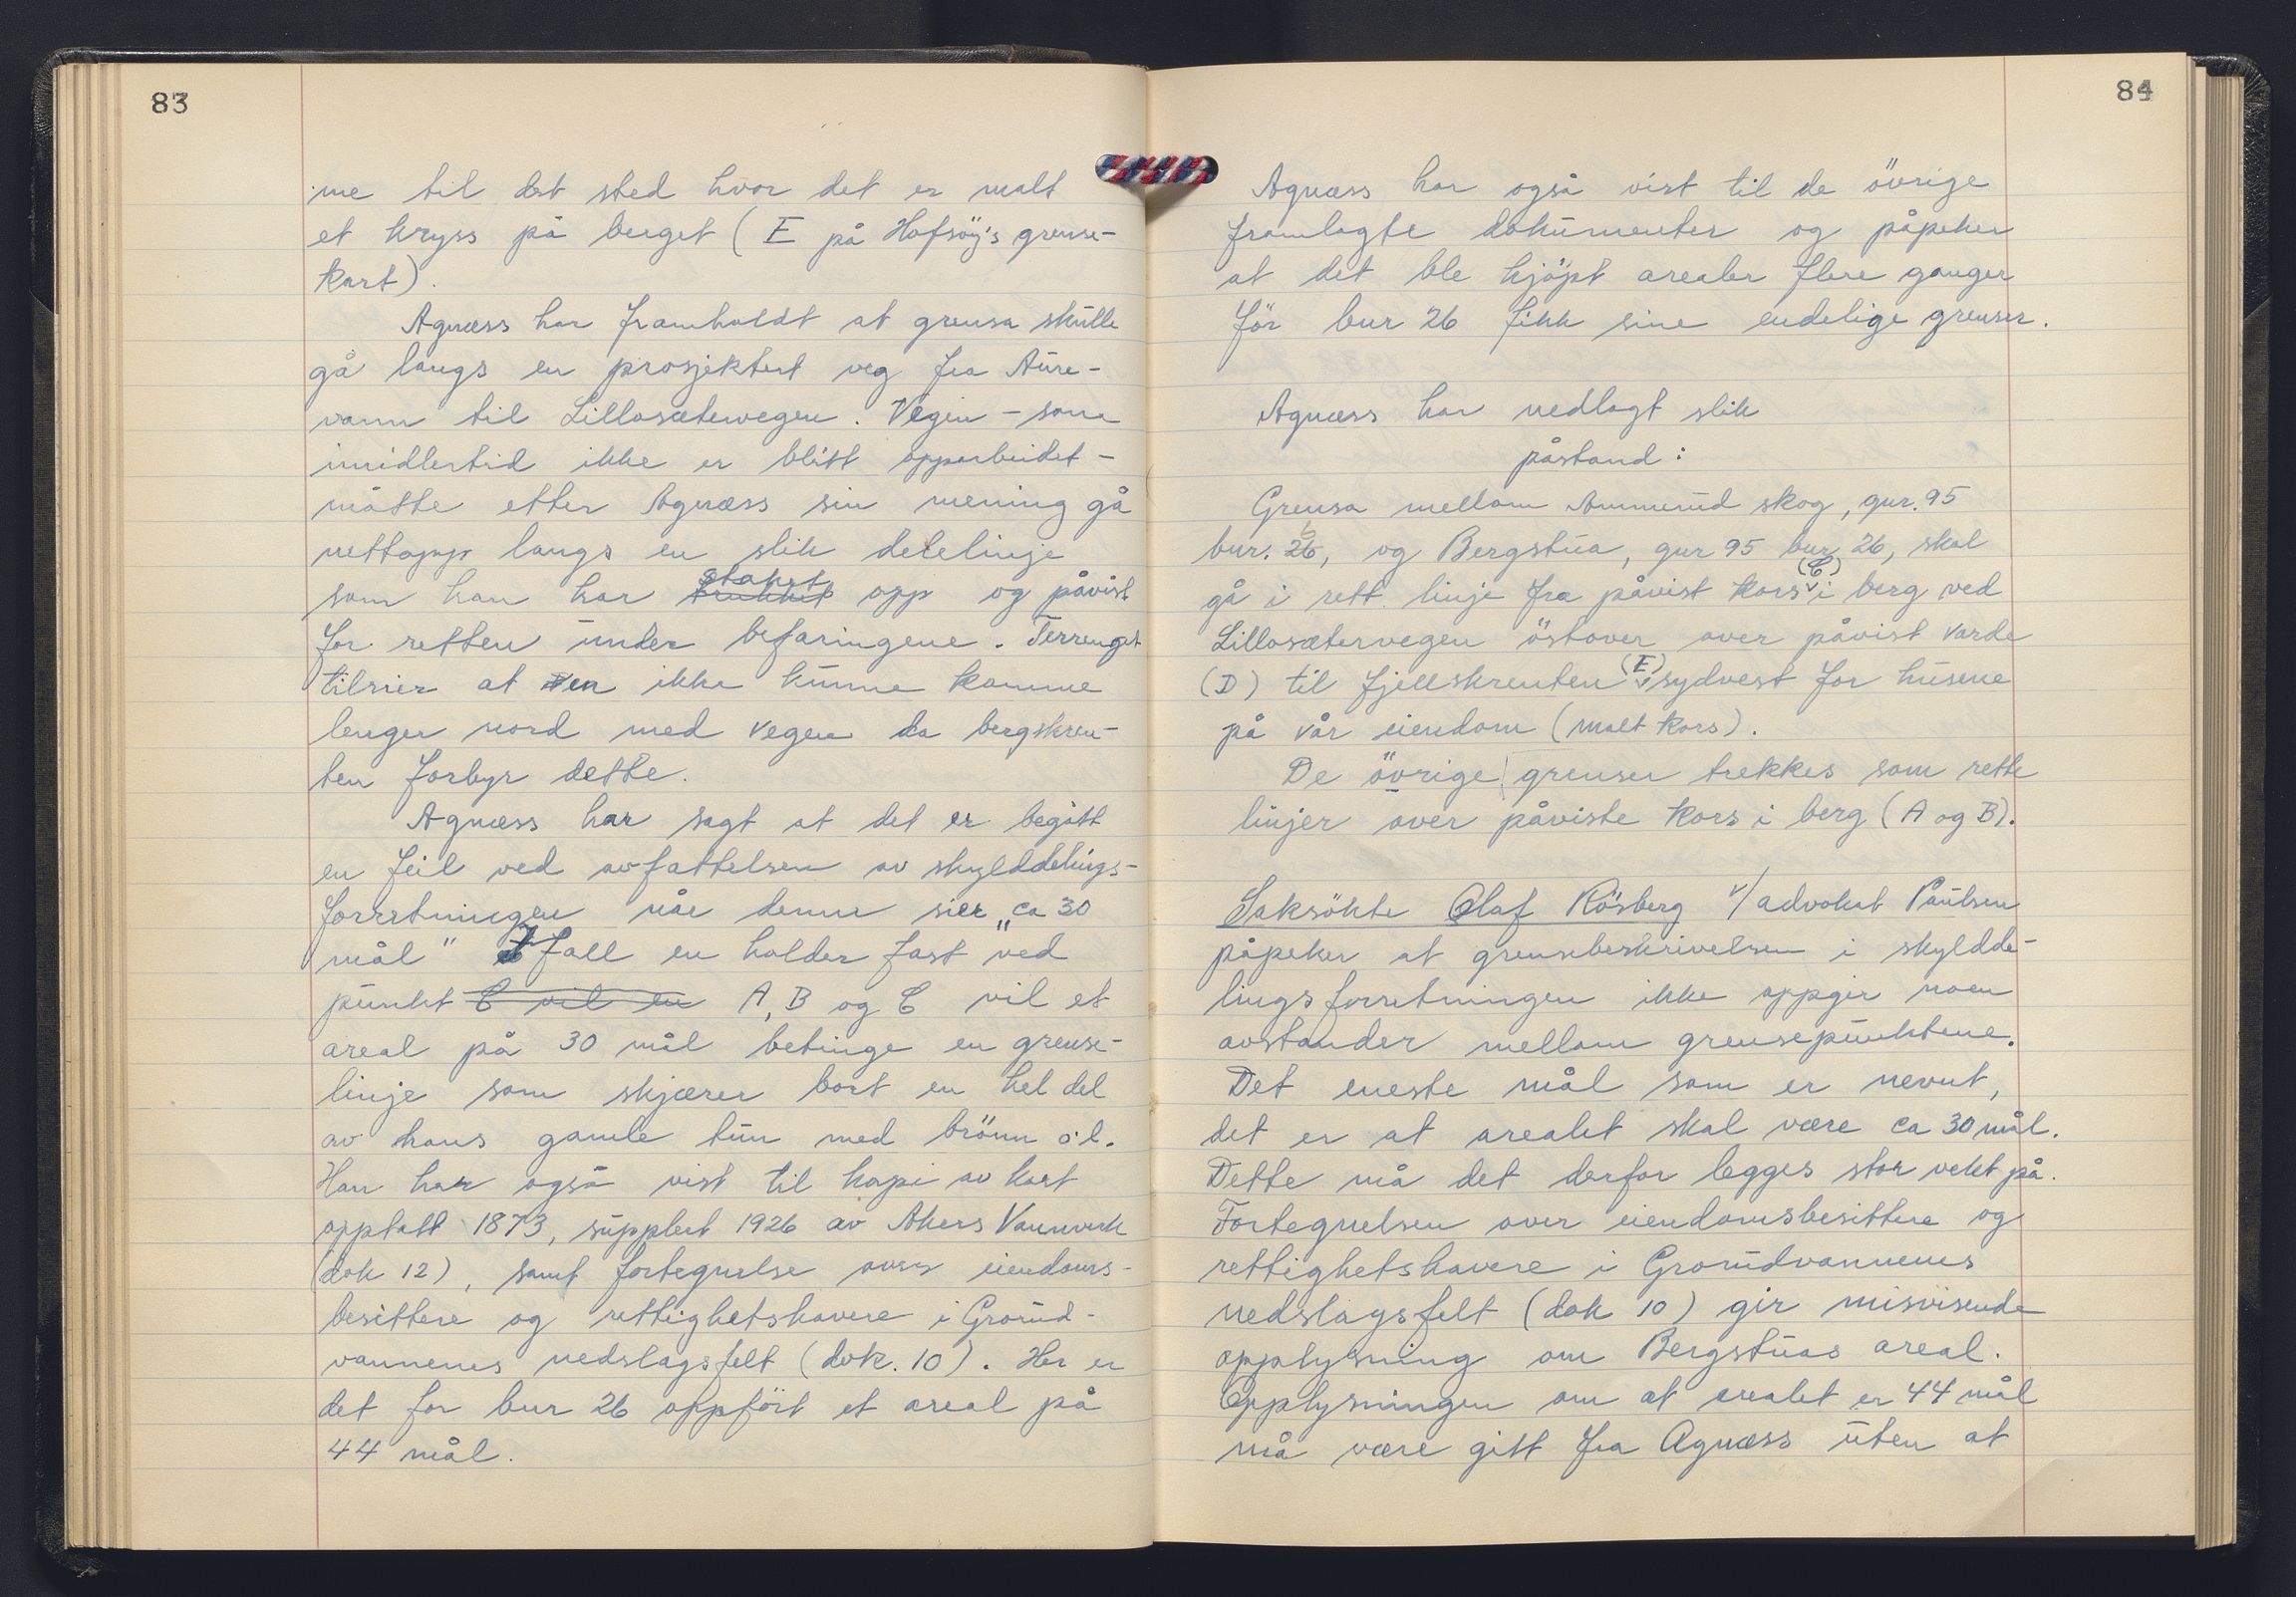 83
me til det sted hvor det er malt
et kryss på berget (E på Hofsöy's grense-
kart).
Agnæss har framholdt at grensa skulle
gå langs en prosjektert veg fra Aure-
vann til Lillosætervegen. Vegen – som
imidlertid ikke er blitt opparbeidet –
måtte etter Agnæss sin mening gå
nettopp langs en slik delelinje
som han har staket opp og påvist
for retten under befaringene. Terrenget
tilsier at en ikke kunne komme
lenger nord med vegen da bergskren-
ten forbyr dette.
Agnæss har sagt at det er begått
en feil ved avfattelsen av skylddelings-
forretningen når denne sier „ca 30
mål" Ifall en holder fast ved
punkt C vil en A, B og C vil et
areal på 30 mål betinge en grense-
linje som skjærer bort en hel del
av hans gamle tun med brönn o.l.
Han har også vist til kopi av kart
opptatt 1873, supplert 1926 av Akers Vannverk
(dok 12), samt fortegnelse over eiendoms-
besittere og rettighetshavere i Grorud-
vannenes nedslagsfelt (dok. 10). Her er
det for bnr 26 oppfört et areal på
44 mål.
84
Agnæss har også vist til de övrige
framlagte dokumenter og påpeker
at det ble kjöpt arealer flere ganger
för bnr 26 fikk sine endelige grenser.
Agnæss har nedlagt slik
påstand:
Grensa mellom Ammerud skog, gnr. 95
bnr. 26, og Bergstua, gnr 95 bnr 26, skal
gå i rett linje fra påvist kors (C) i berg ved
Lillosætervegen östover over påvist varde
(D) til fjellskrenten (E) sydvest for husene
på vår eiendom (malt kors).
De övrige grenser trekkes som rette
linjer over påviste kors i berg (A og B).
Saksökte Olaf Rösberg v/ advokat Paulsen
påpeker at grensebeskrivelsen i skyldde-
lingsforretningen ikke oppgir noen
avstander mellom grensepunktene.
Det eneste mål som er nevnt,
det er at arealet skal være ca 30 mål.
Dette må det derfor legges stor vekt på.
Fortegnelsen over eiendomsbesittere og
rettighetshavere i Grorudvannenes
nedslagsfelt (dok 10) gir misvisende
opplysning om Bergstuas areal.
Opplysningen om at arealet er 44 mål
må være gitt fra Agnæss uten at